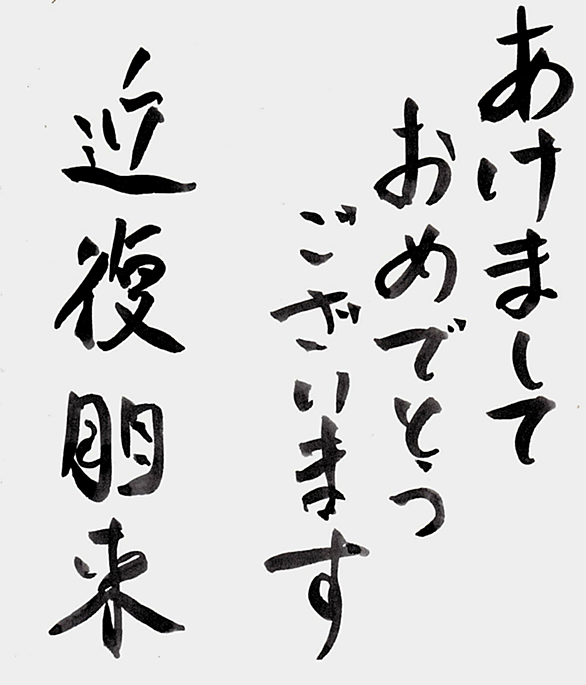 あけまして
おめでとう
ございます
近復朋来